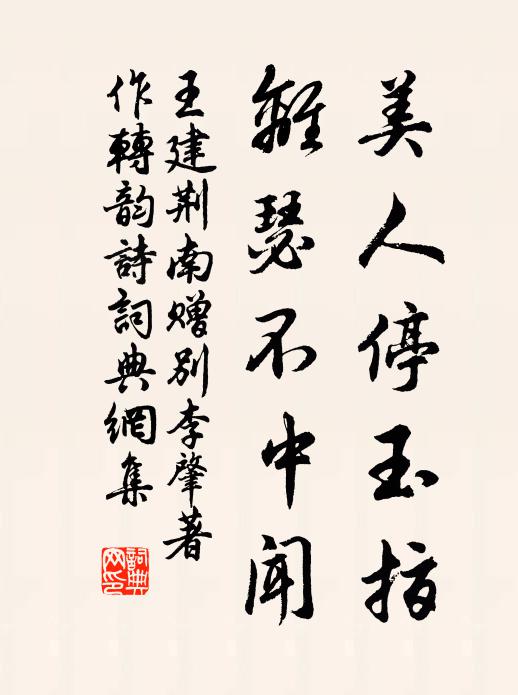 美人停玉指
離瑟不中聞
王建荆南赠别李肇著
作轉韵詩詞典網集
詞典
网印